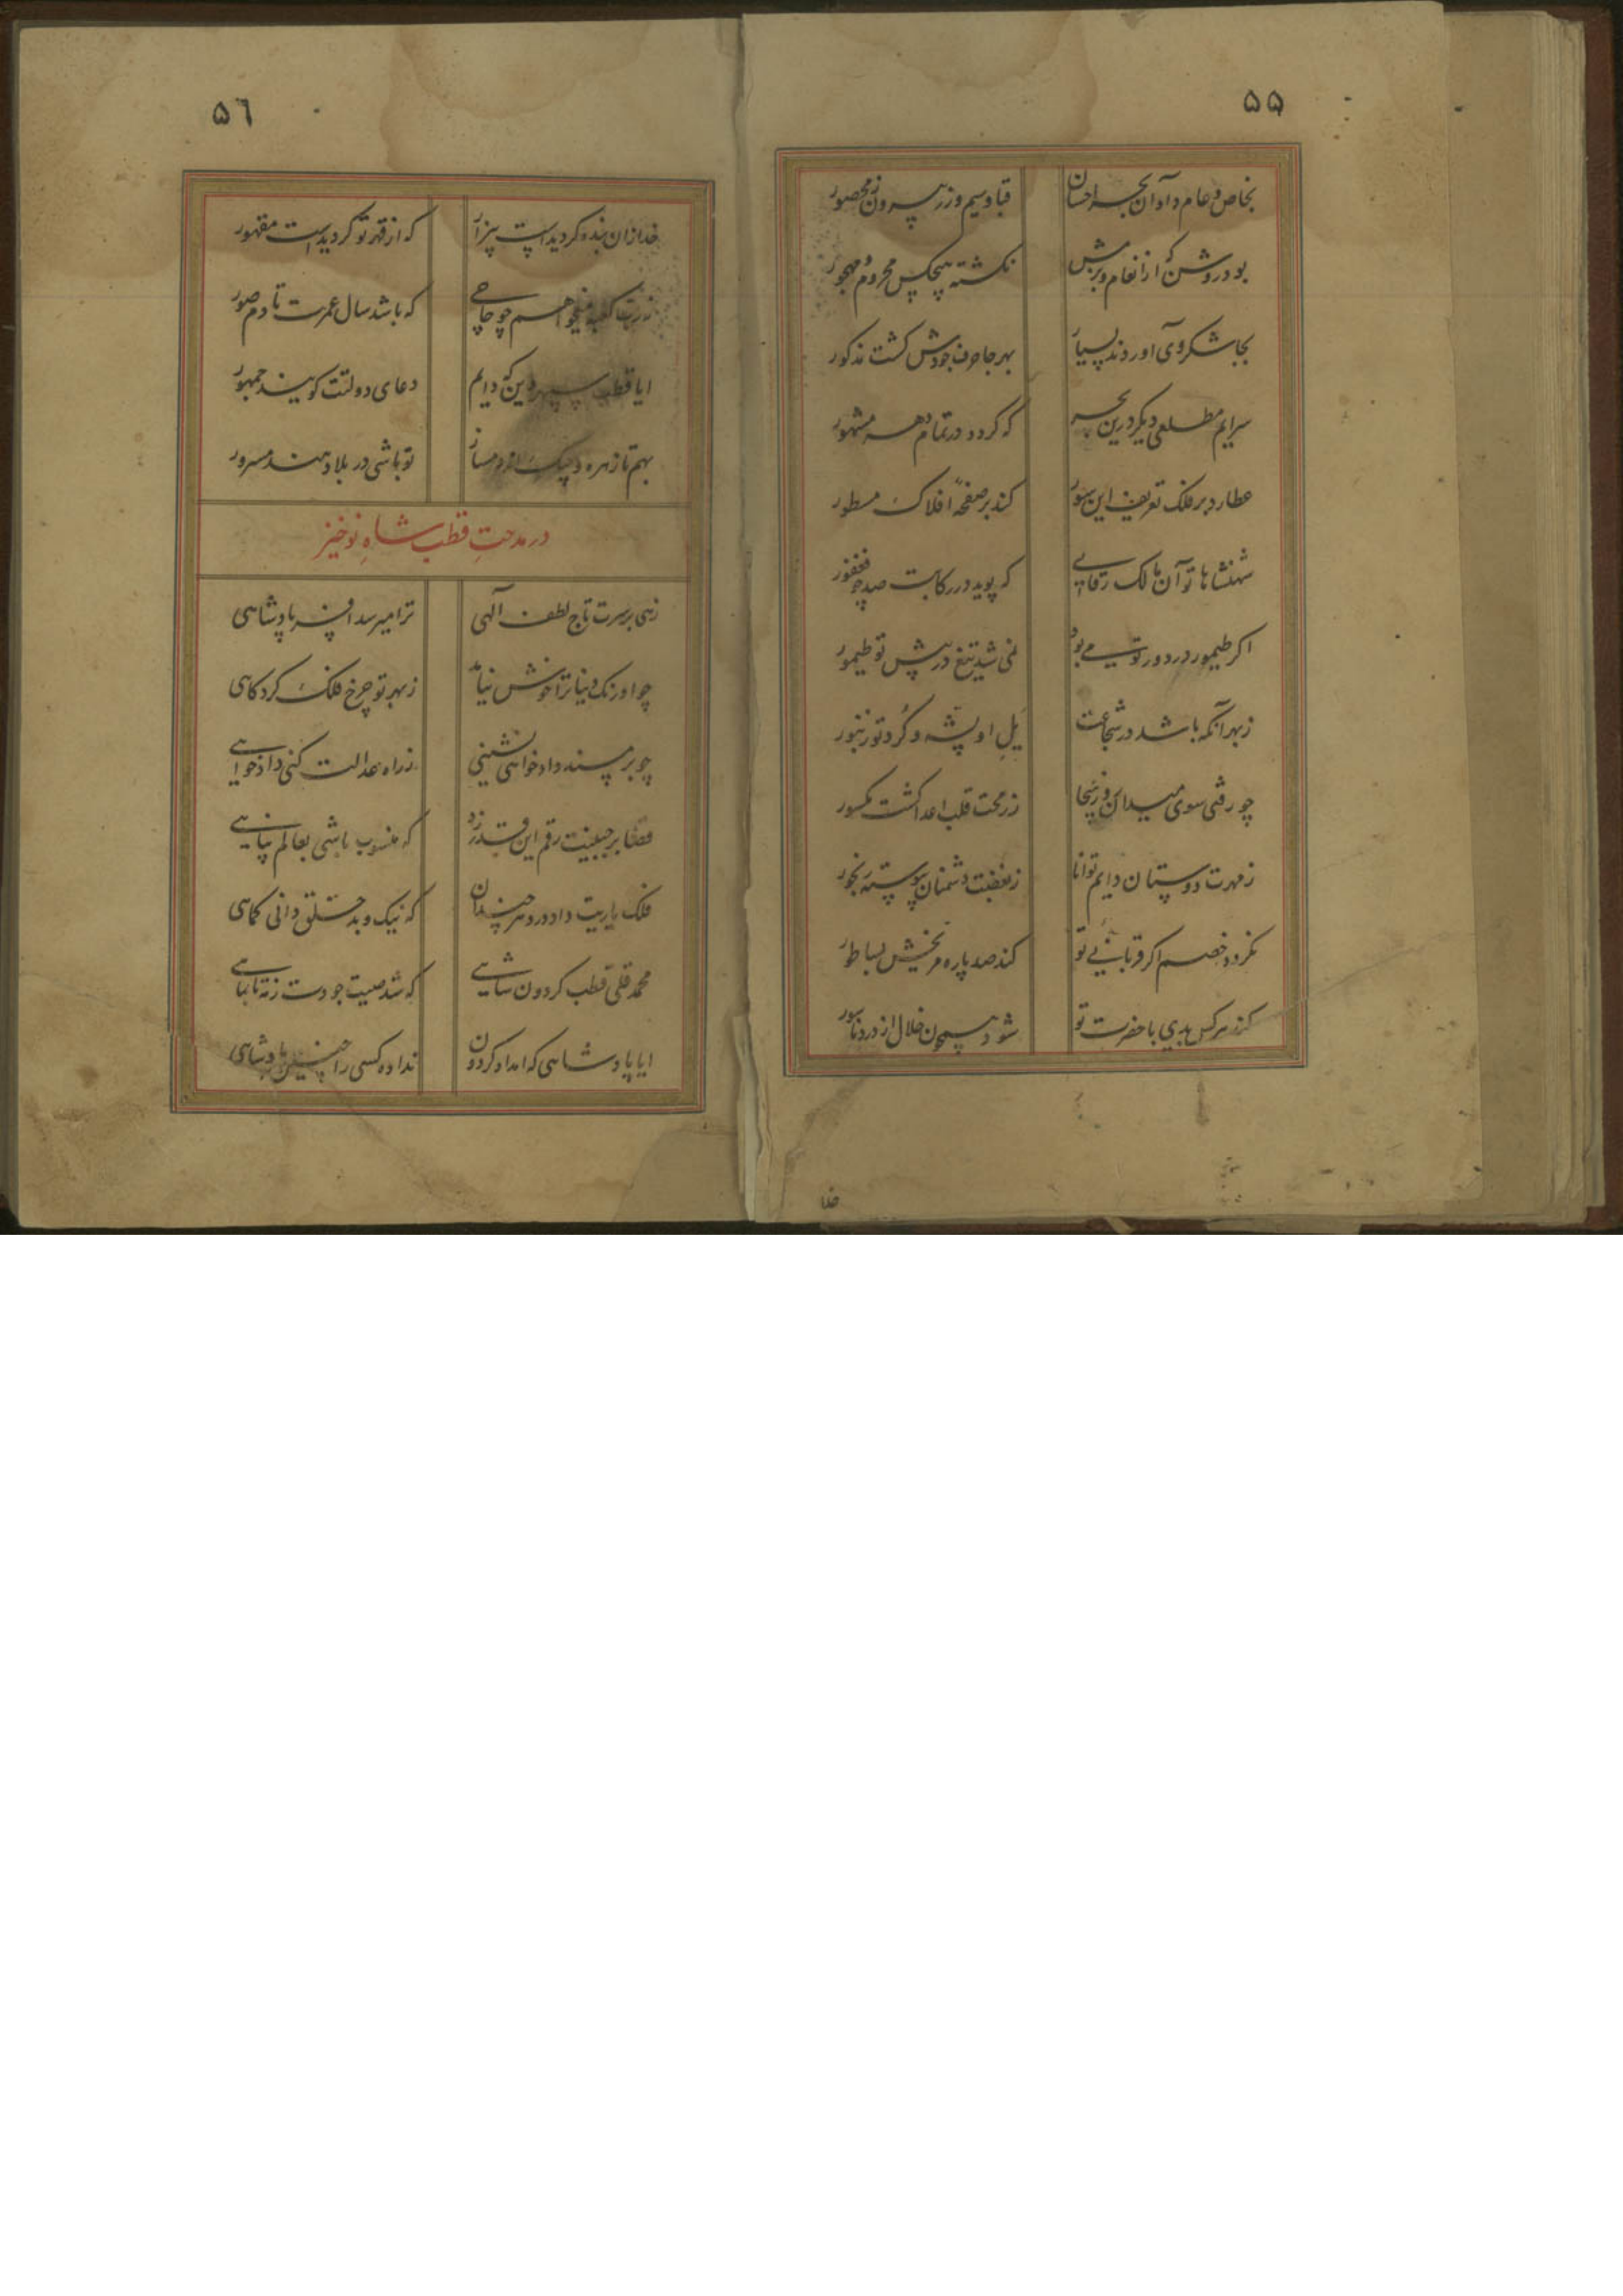 ۵۵
بخاص و عام داد آن بحر احسان
قبا و سیم و زر بیرون ز محصور
بود روشن که از انعام و بزمش
نکشته هیچکس محروم و مهجور
بجا شکر وی آوردند بسیار
بهر جا حرف جودش کشت مذکور
سرایم مطلعی دیکر درین بحر
که کردد در تمام دهر مشهور
عطارد بر فلک تعریف این سور
کند بر صفحه افلاک مسطور
شهنشاها تو آن مالک رقابی
که پوید در رکابت صد چو فغفور
اکر طیمور در دور تو می بود
نمی شد تیغ در پیش تو طیمور
ز بهر آنکه باشد در شجاعت
یل او پشه و کرد تو زنبور
چو رفتی سوی میدان روز هیجا
ز رمحت قلب اعدا کشت مکسور
ز مهرت دوستان دایم توانا
ز بغضت دشمنان پیوسته رنجور
نکردد خصم اکر قربانی تو
کند صد پاره مریخش بساطور
کند هر کس بدی با حضرت تو
شود همچون خلال از درد ناسور
خدا
۵۶
خدا زان بنده کردیدست بیزار
که از قهر تو کردیدست مقهور
ز رب کعبه میخواهم چو حاجی
که باشد سال عمرت تا دم صور
ایا قطب سپهر دین که دایم
دعای دولتت کویند جمهور
بهم تا زهره و چنک اند دمساز
تو باشی در بلاد هند مسرور
در مدحت قطب شاه نوخیز
زهی بر سرت تاج لطف آلهی
ترا میرسد افسر پادشاهی
چو اورنک دنیا ترا خوش نیامد
ز بهر تو چرخ فلک کرد کاهی
چو بر مسند دادخواهی نشینی
ز راه عدالت کنی دادخواهی
قضا بر جبینت رقم این قدر زد
که منسوب باشی بعالم پناهی
فلک یاریت داد در دهر چندان
که نیک و بد خلق دانی کماهی
محمد قلی قطب کردون شاهی
که شد صیت جودت ز مه تا بماهی
ایا پادشاهی که امداد کردون
نداده کسی را چنین پادشاهی